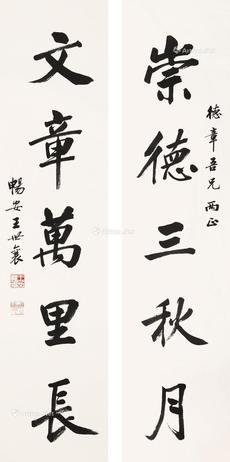 德章吾兄两正
崇德三秋月
文章萬里長
暢安王世襄